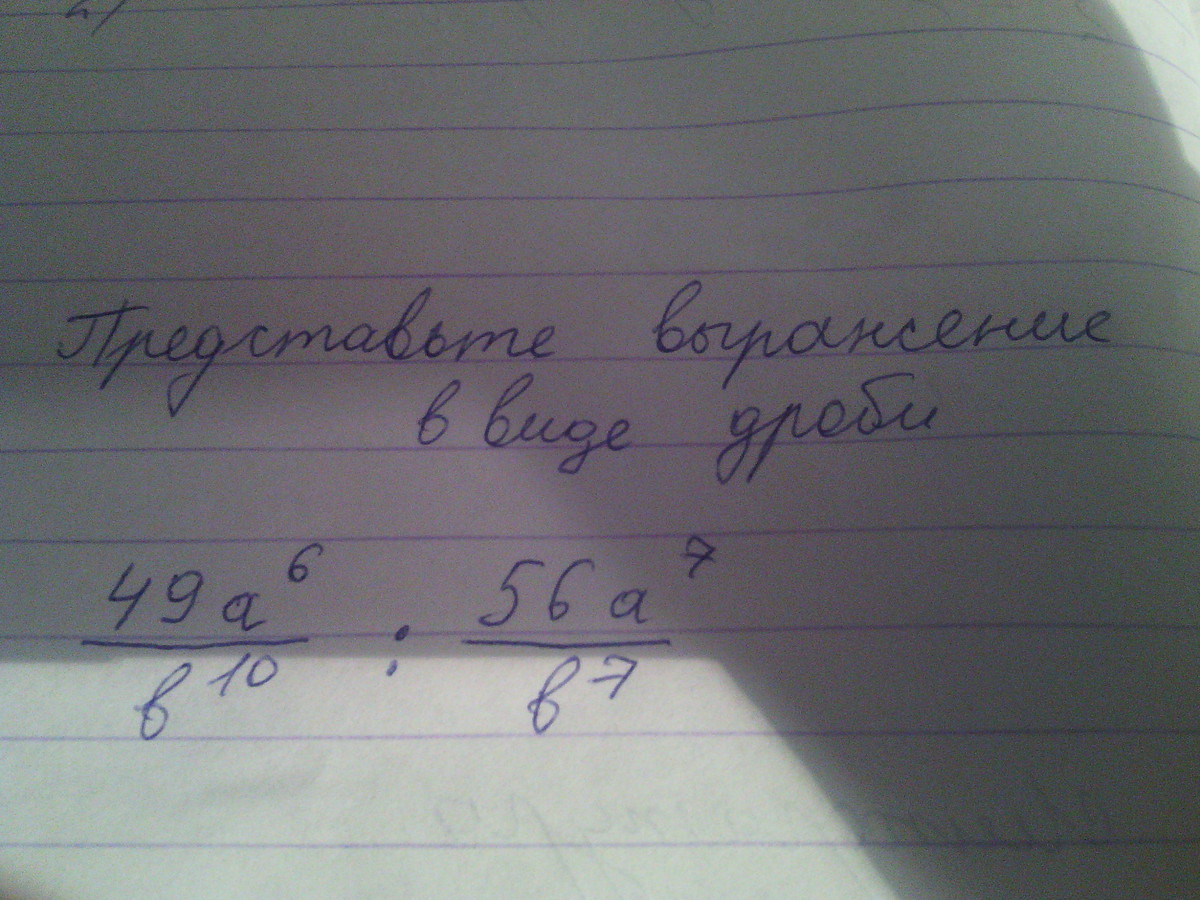 Представьте выражение
в виде дроби
49а⁶ : 56а⁷
в¹⁰ в⁷